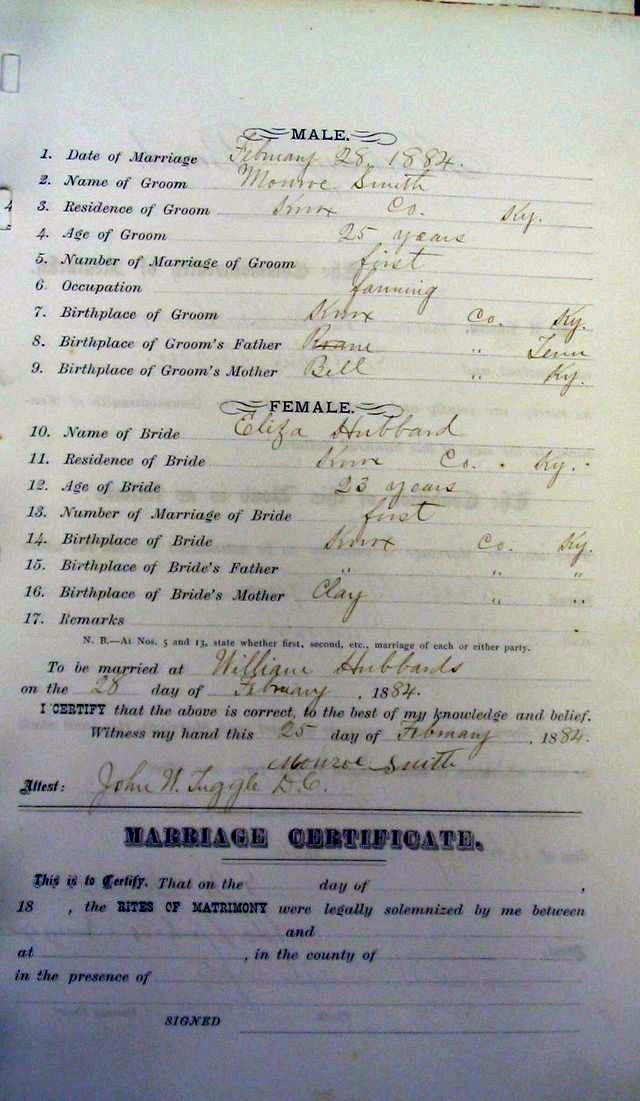 MALE.
1. Date of Marriage February 28, 1884.
2. Name of Groom Monroe Smith
3. Residence of Groom Knox Co. Ky.
4. Age of Groom 25 years
5. Number of Marriage of Groom first
6. Occupation farming
7. Birthplace of Groom Knox Co. Ky.
8. Birthplace of Groom's Father Roane " Tenn
9. Birthplace of Groom's Mother Bell " Ky.
FEMALE.
10. Name of Bride Eliza Hubbard
11. Residence of Bride Knox Co. Ky.
12. Age of Bride 23 years
13. Number of Marriage of Bride first
14. Birthplace of Bride Knox Co. Ky.
15. Birthplace of Bride's Father " " "
16. Birthplace of Bride's Mother Clay " "
17. Remarks
N. B.—At Nos. 5 and 13, state whether first, second, etc., marriage of each or either party.
To be married at William Hubbards
on the 28 day of February, 1884.
I CERTIFY that the above is correct, to the best of my knowledge and belief.
Witness my hand this 25 day of February, 1884.
Monroe Smith
Attest: John W. Tuggle D.C.
MARRIAGE CERTIFICATE.
This is to Certify, That on the day of ,
18 , the RITES OF MATRIMONY were legally solemnized by me between
and
at , in the county of
in the presence of
SIGNED